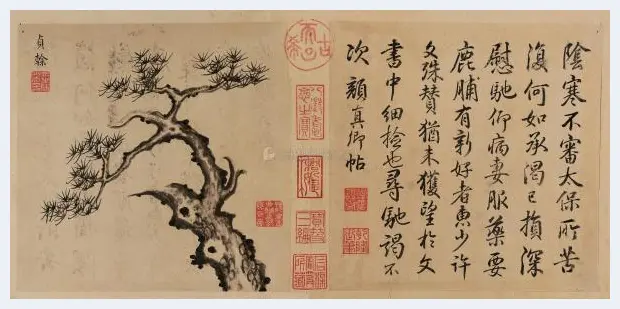 陰寒不審太保所苦
復何如承渴已損深
慰馳仰病妻服藥要
鹿脯有新好者惠少許
文殊贊猶未獲望於文
書中細撿也尋馳謁不
次顏真卿帖
貞榦